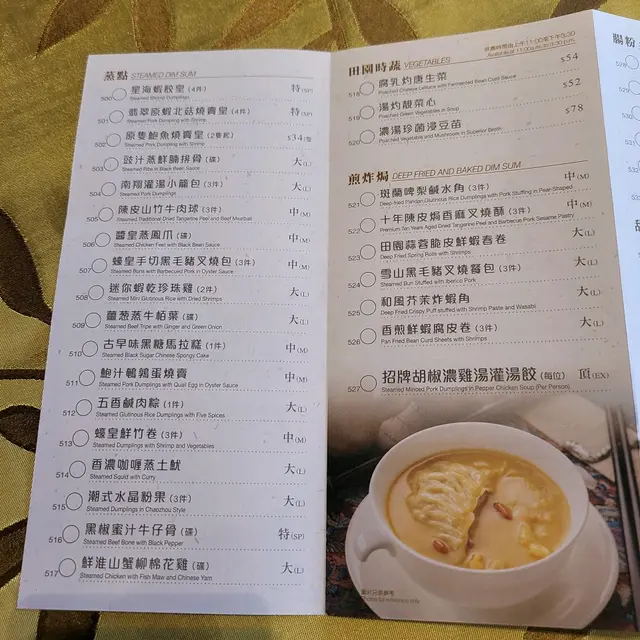 蒸點 STEAMED DIM SUM
500 星海蝦餃皇 (4件) 特(SP)
Steamed Shrimp Dumplings
501 翡翠原蝦北菇燒賣皇 (4件) 特(SP)
Steamed Pork Dumpling with Shrimp
502 原隻鮑魚燒賣皇 (2隻起) $34/隻
Steamed Pork Dumpling with Shrimp
503 豉汁蒸鮮腩排骨 (碟) 大(L)
Steamed Ribs in Black Bean Sauce
504 南翔灌湯小籠包 (3件) 大(L)
Steamed Pork Dumplings
505 陳皮山竹牛肉球 (3件) 中(M)
Steamed Traditional Dried Tangerine Peel and Beef Meatball
506 醬皇蒸鳳爪 (碟) 中(M)
Steamed Chicken Feet with Black Bean Sauce
507 蠔皇手切黑毛豬叉燒包 (3件) 中(M)
Steamed Buns with Barbecued Pork in Oyster Sauce
508 迷你蝦乾珍珠雞 (2件) 大(L)
Steamed Mini Glutinous Rice with Dried Shrimps
509 薑葱蒸牛栢葉 (碟) 大(L)
Steamed Beef Tripe with Ginger and Green Onion
510 古早味黑糖馬拉糕 (1件) 中(M)
Steamed Black Sugar Chinese Spongy Cake
511 鮑汁鵪鶉蛋燒賣 中(M)
Steamed Pork Dumplings with Quail Egg in Oyster Sauce
512 五香鹹肉粽 (1件) 大(L)
Steamed Glutinous Rice Dumplings with Five Spices
513 蠔皇鮮竹卷 (3件) 中(M)
Steamed Dumplings with Shrimp and Vegetables
514 香濃咖喱蒸土魷 大(L)
Steamed Squid with Curry
515 潮式水晶粉果 (3件) 大(L)
Steamed Dumplings in Chaozhou Style
516 黑椒蜜汁牛仔骨 (碟) 特(SP)
Steamed Beef Bone with Black Pepper
517 鮮淮山蟹柳棉花雞 (碟) 大(L)
Steamed Chicken with Fish Maw and Chinese Yam
田園時蔬 VEGETABLES
供應時間由上午11:00至下午3:30
518 腐乳灼唐生菜 $54
Poached Chinese Lettuce with Fermented Bean Curd Sauce
519 湯灼靚菜心 $52
Poached Green Vegetables in Soup
520 濃湯珍菌浸豆苗 $78
Poached Vegetable and Mushroom in Superior Broth
煎炸焗 DEEP FRIED AND BAKED DIM SUM
521 斑蘭啤梨鹹水角 (3件) 中(M)
Deep-fried Pandan Glutinous Rice Dumplings with Pork Stuffing in Pear-Shaped
522 十年陳皮焗酉麻叉燒酥 (3件) 中(M)
Premium Ten Years Aged Dried Tangerine Peel and Barbecue Pork Sesame Pastry
523 田園蒜蓉脆皮鮮蝦春卷 大(L)
Deep Fried Spring Rolls with Shrimps
524 雪山黑毛豬叉燒餐包 (3件) 大(L)
Steamed Bun Stuffed with Iberico Pork
525 和風芥茉炸蝦角 大(L)
Deep Fried Crispy Puff stuffed with Shrimp Paste and Wasabi
526 香煎鮮蝦腐皮卷 (3件) 大(L)
Pan Fried Bean Curd Sheets with Shrimps
527 招牌胡椒濃雞湯灌湯餃 (每位) 頂(EX)
Steamed Minced Pork Dumplings in Pepper Chicken Soup (Per Person)
腸粉
528
529
530
531